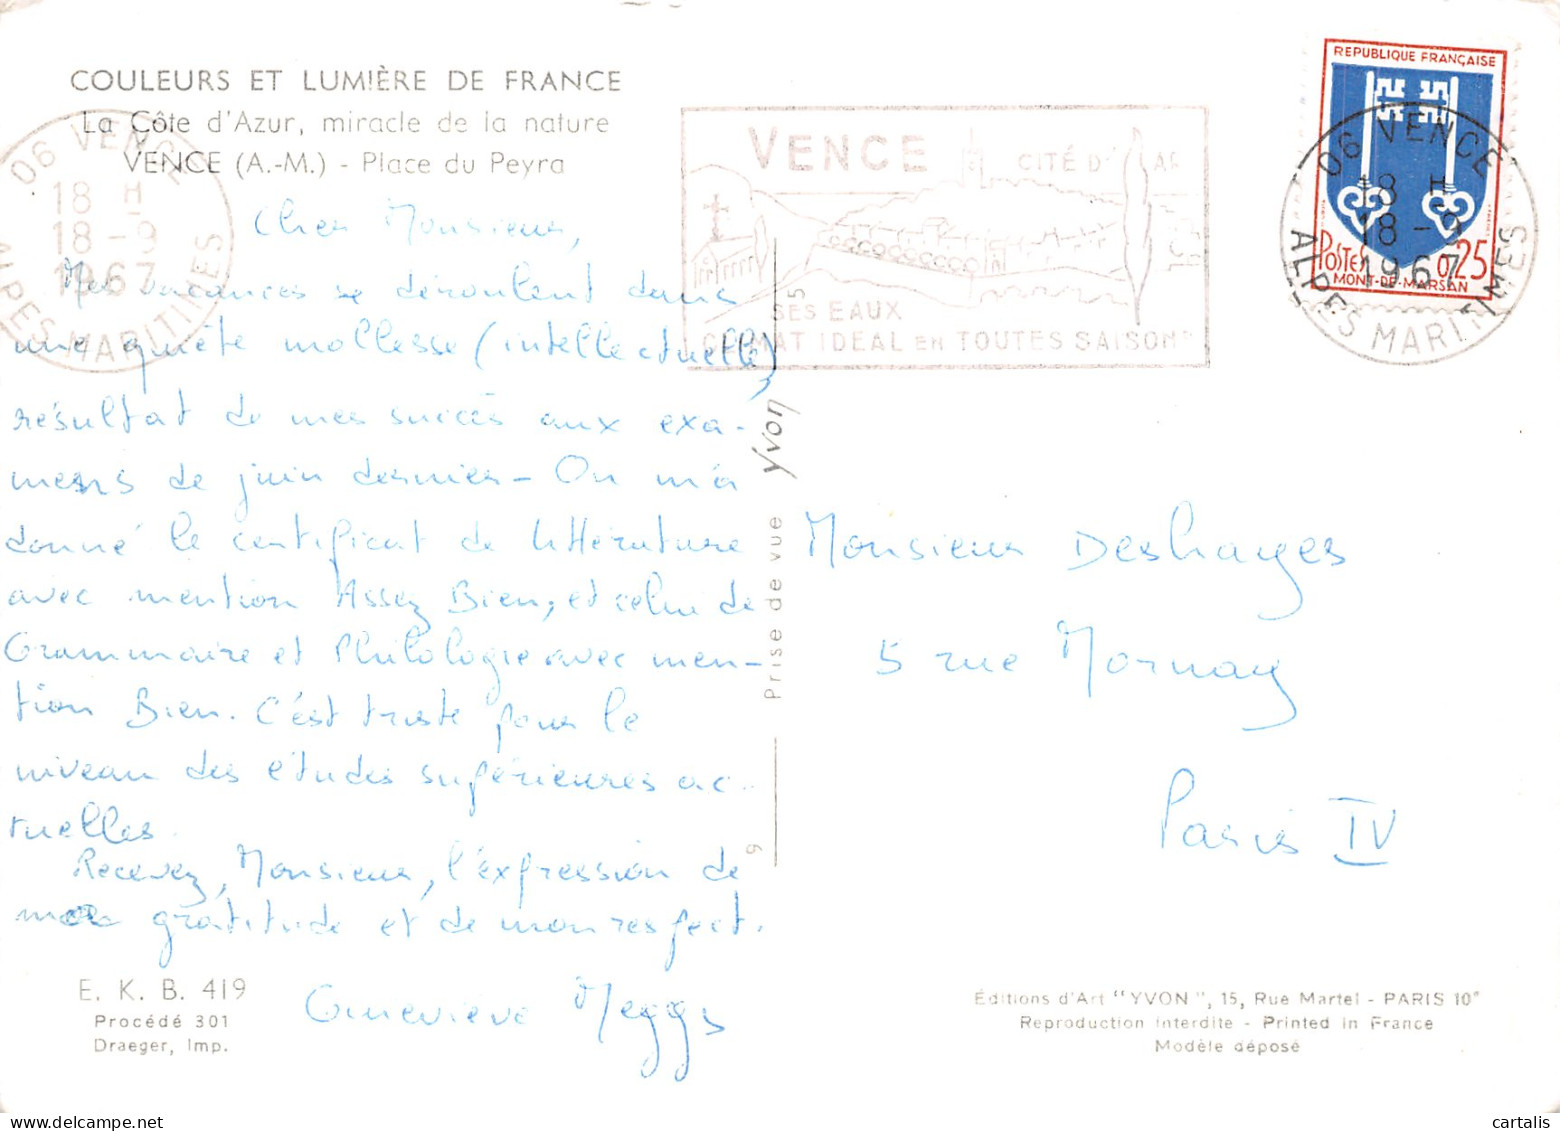 COULEURS ET LUMIÈRE DE FRANCE
La Côte d'Azur, miracle de la nature
VENCE (A.-M.) - Place du Peyra
06 VENCE
18 H
18 -9
1967
ALPES MARITIMES
VENCE
CITÉ D'
SES EAUX
CLIMAT IDEAL en TOUTES SAISONS
REPUBLIQUE FRANÇAISE
POSTES 0,25
MONT-DE-MARSAN
06 VENCE
18 H
18 -9
1967
ALPES MARITIMES
Cher Monsieur,
Mes vacances se déroulent dans
une quiète mollesse (intellectuelle)
résultat de mes succès aux exa-
mens de juin dernier - On m'a
donné le certificat de littérature
avec mention Assez Bien, et celui de
Grammaire et Philologie avec men-
tion Bien. C'est triste pour le
niveau des études supérieures ac-
tuelles.
Recevez, Monsieur, l'expression de
ma gratitude et de mon respect.
Geneviève Meggs
Prise de vue Yvon
Monsieur Deshayes
5 rue Mornay
Paris IV
E. K. B. 419
Procédé 301
Draeger, Imp.
Éditions d'Art "YVON", 15, Rue Martel - PARIS 10e
Reproduction interdite - Printed in France
Modèle déposé
cartalis